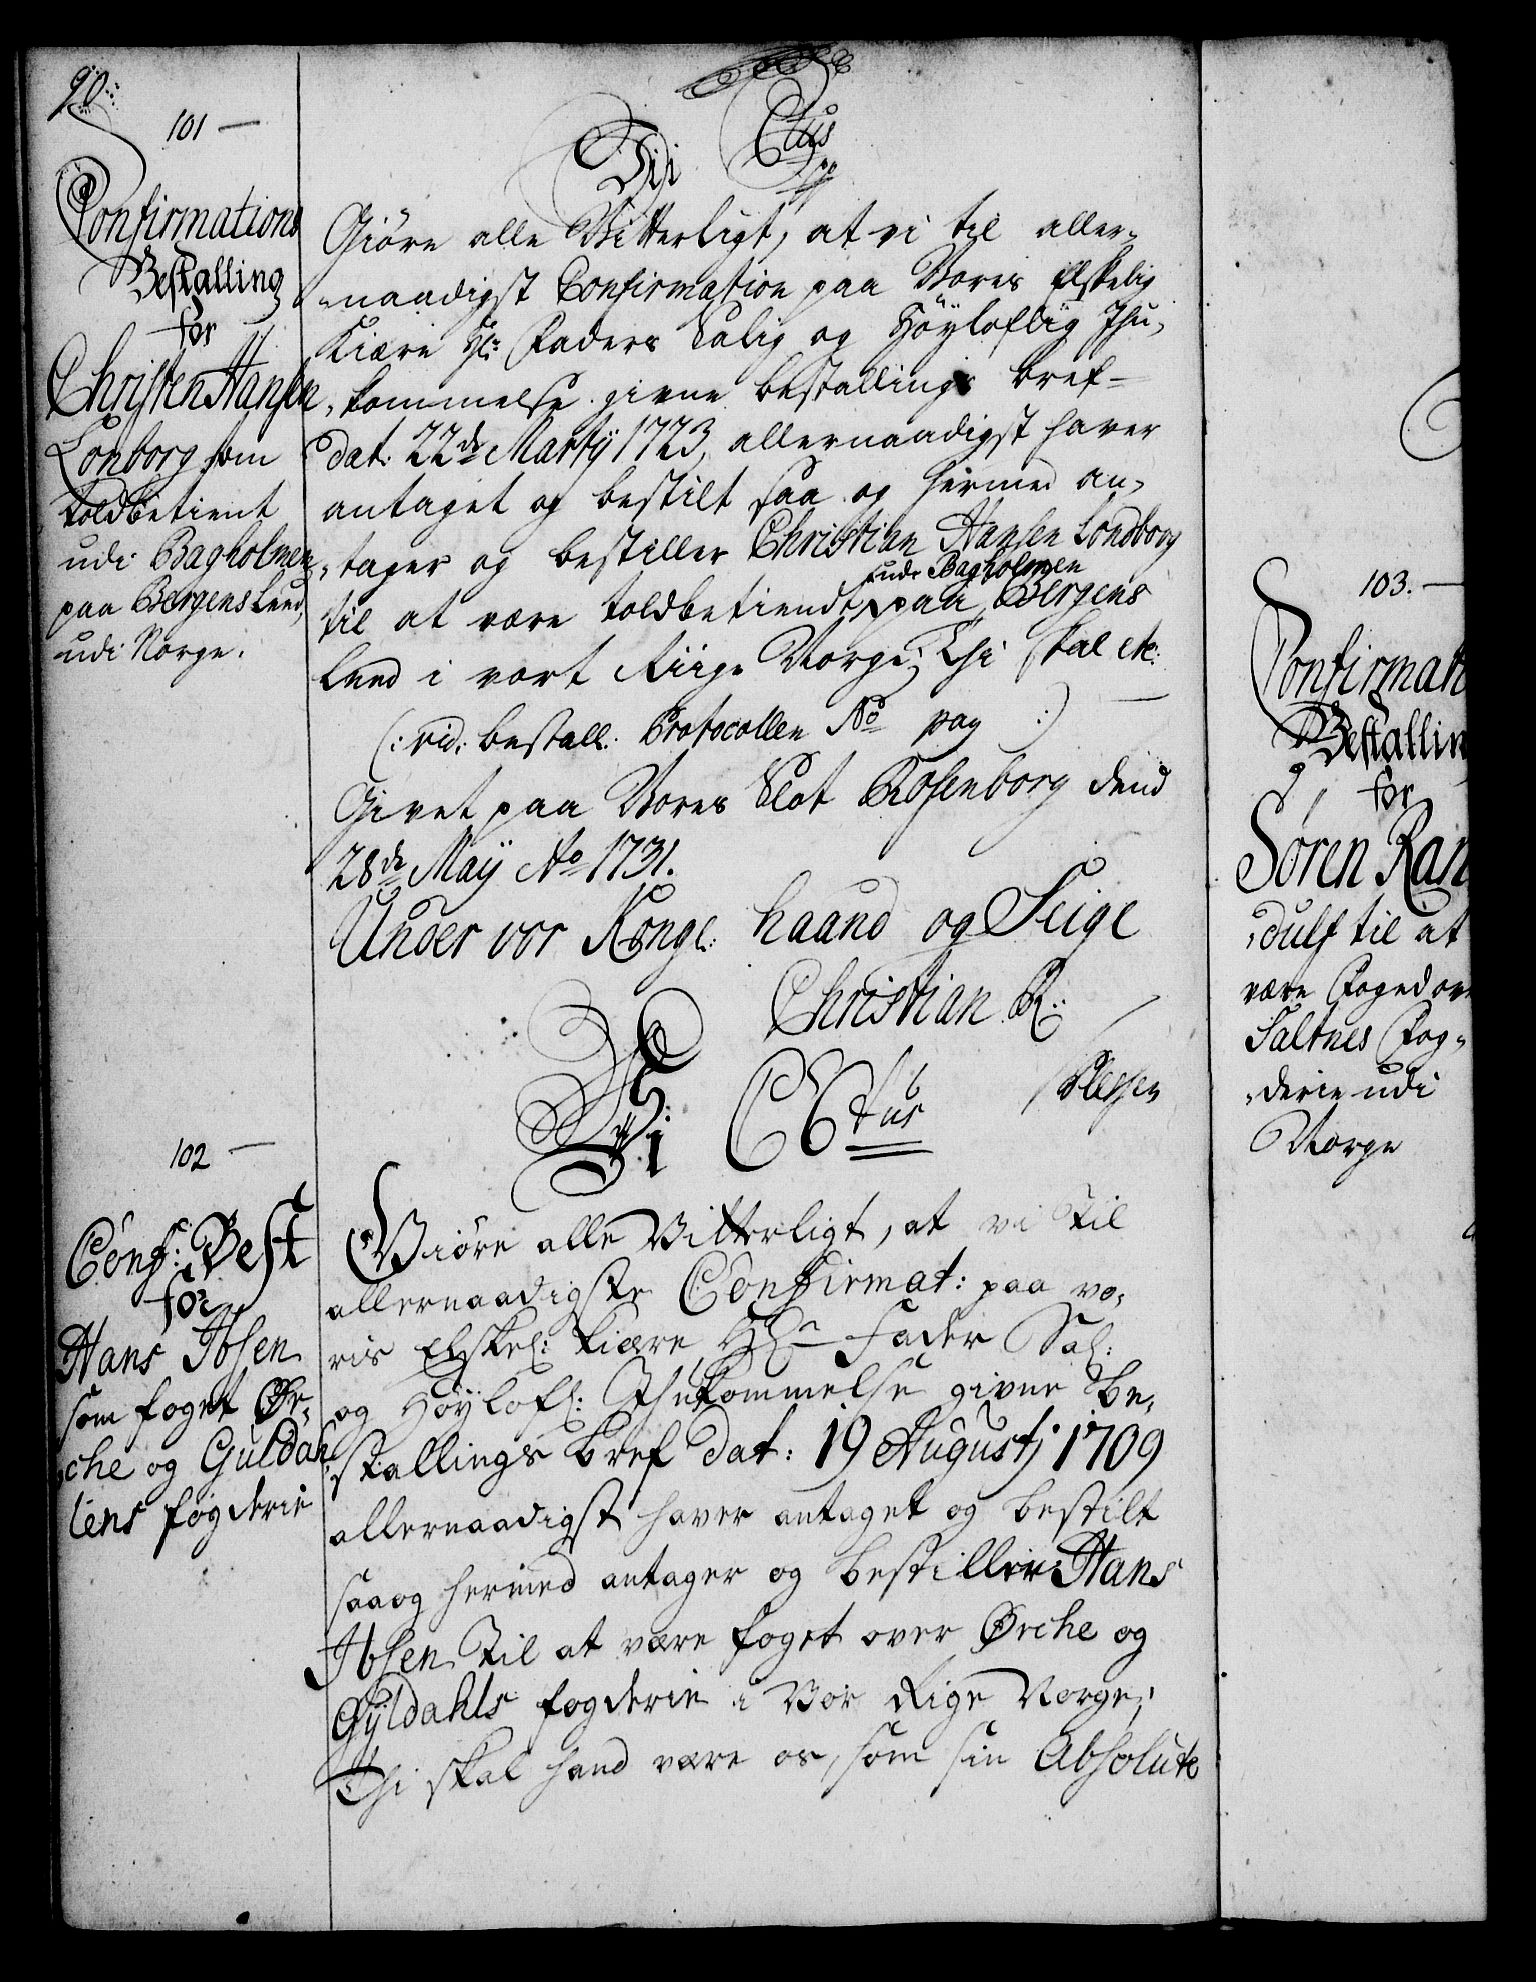 90.
101 —
Confirmations
Bestalling
for
Christen Hansen
Lonborg som
toldbetient
udi Bagholmen
paa Bergens Leen,
udi Norge.
Vi C 6tus
Giöre alle Vitterligt, at vi til aller-
-naadigst Confirmation paa Vores Elskelig
Kiære Hr: Faders Salig og Höyloflig Ihu-
-kommelse givne bestallings bref
dat: 22de Martÿ 1723, allernaadigst haver
antaget og bestilt saa og hermed an-
-tager og bestiller Christian Hansen Londborg
til at være toldbetiendt udi Bagholmen paa Bergens
Leen i vort Riige Norge; Thi skal etc:
(: vid: bestall: Protocollen No pag :)
Givet paa Vores Slot Rosenborg dend
28de Maÿ Ao 1731.
Under vor Kongl: haand og Seigl
Christian R:
Plessen
102 —
Conf: Best
for
Hans Ibsen
som foget Ør-
-che og Guldah-
lens fogderie
Vi C 6tus
Giöre alle Vitterligt, at vi til
allernaadigste Confirmat: paa vo-
ris Elskel: kiære Hrn Fader Sal:
og Höylofl: Ihukommelse givne Be-
-stallings bref dat: 19 Augusti 1709
allernaadigst haver antaget og bestilt
saaog hermed antager og bestiller Hans
Ibsen til at være foget over Ørche og
Gÿldahls fogderie i Vor Rige Norge;
Thi skal hand være os, som sin Absolute
103. —
Confirmati
Bestallin
for
Søren Ran
-dulf til at
være Foged ove
Saltnes Fog-
-derie udi
Norge